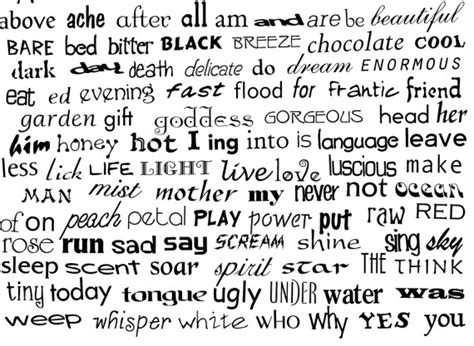 above ache after all am and are be beautiful
BARE bed bitter BLACK BREEZE chocolate COOL
dark day death delicate do dream ENORMOUS
eat ed evening fast flood for frantic friend
garden gift goddess GORGEOUS head her
him honey hot I ing into is language leave
less lick LIFE LIGHT live love luscious make
MAN mist mother my never not ocean
of on peach petal PLAY power put raw RED
rose run sad say SCREAM shine sing sky
sleep scent soar spirit star THE THINK
tiny today tongue ugly UNDER water was
weep whisper white WHO Why YES you